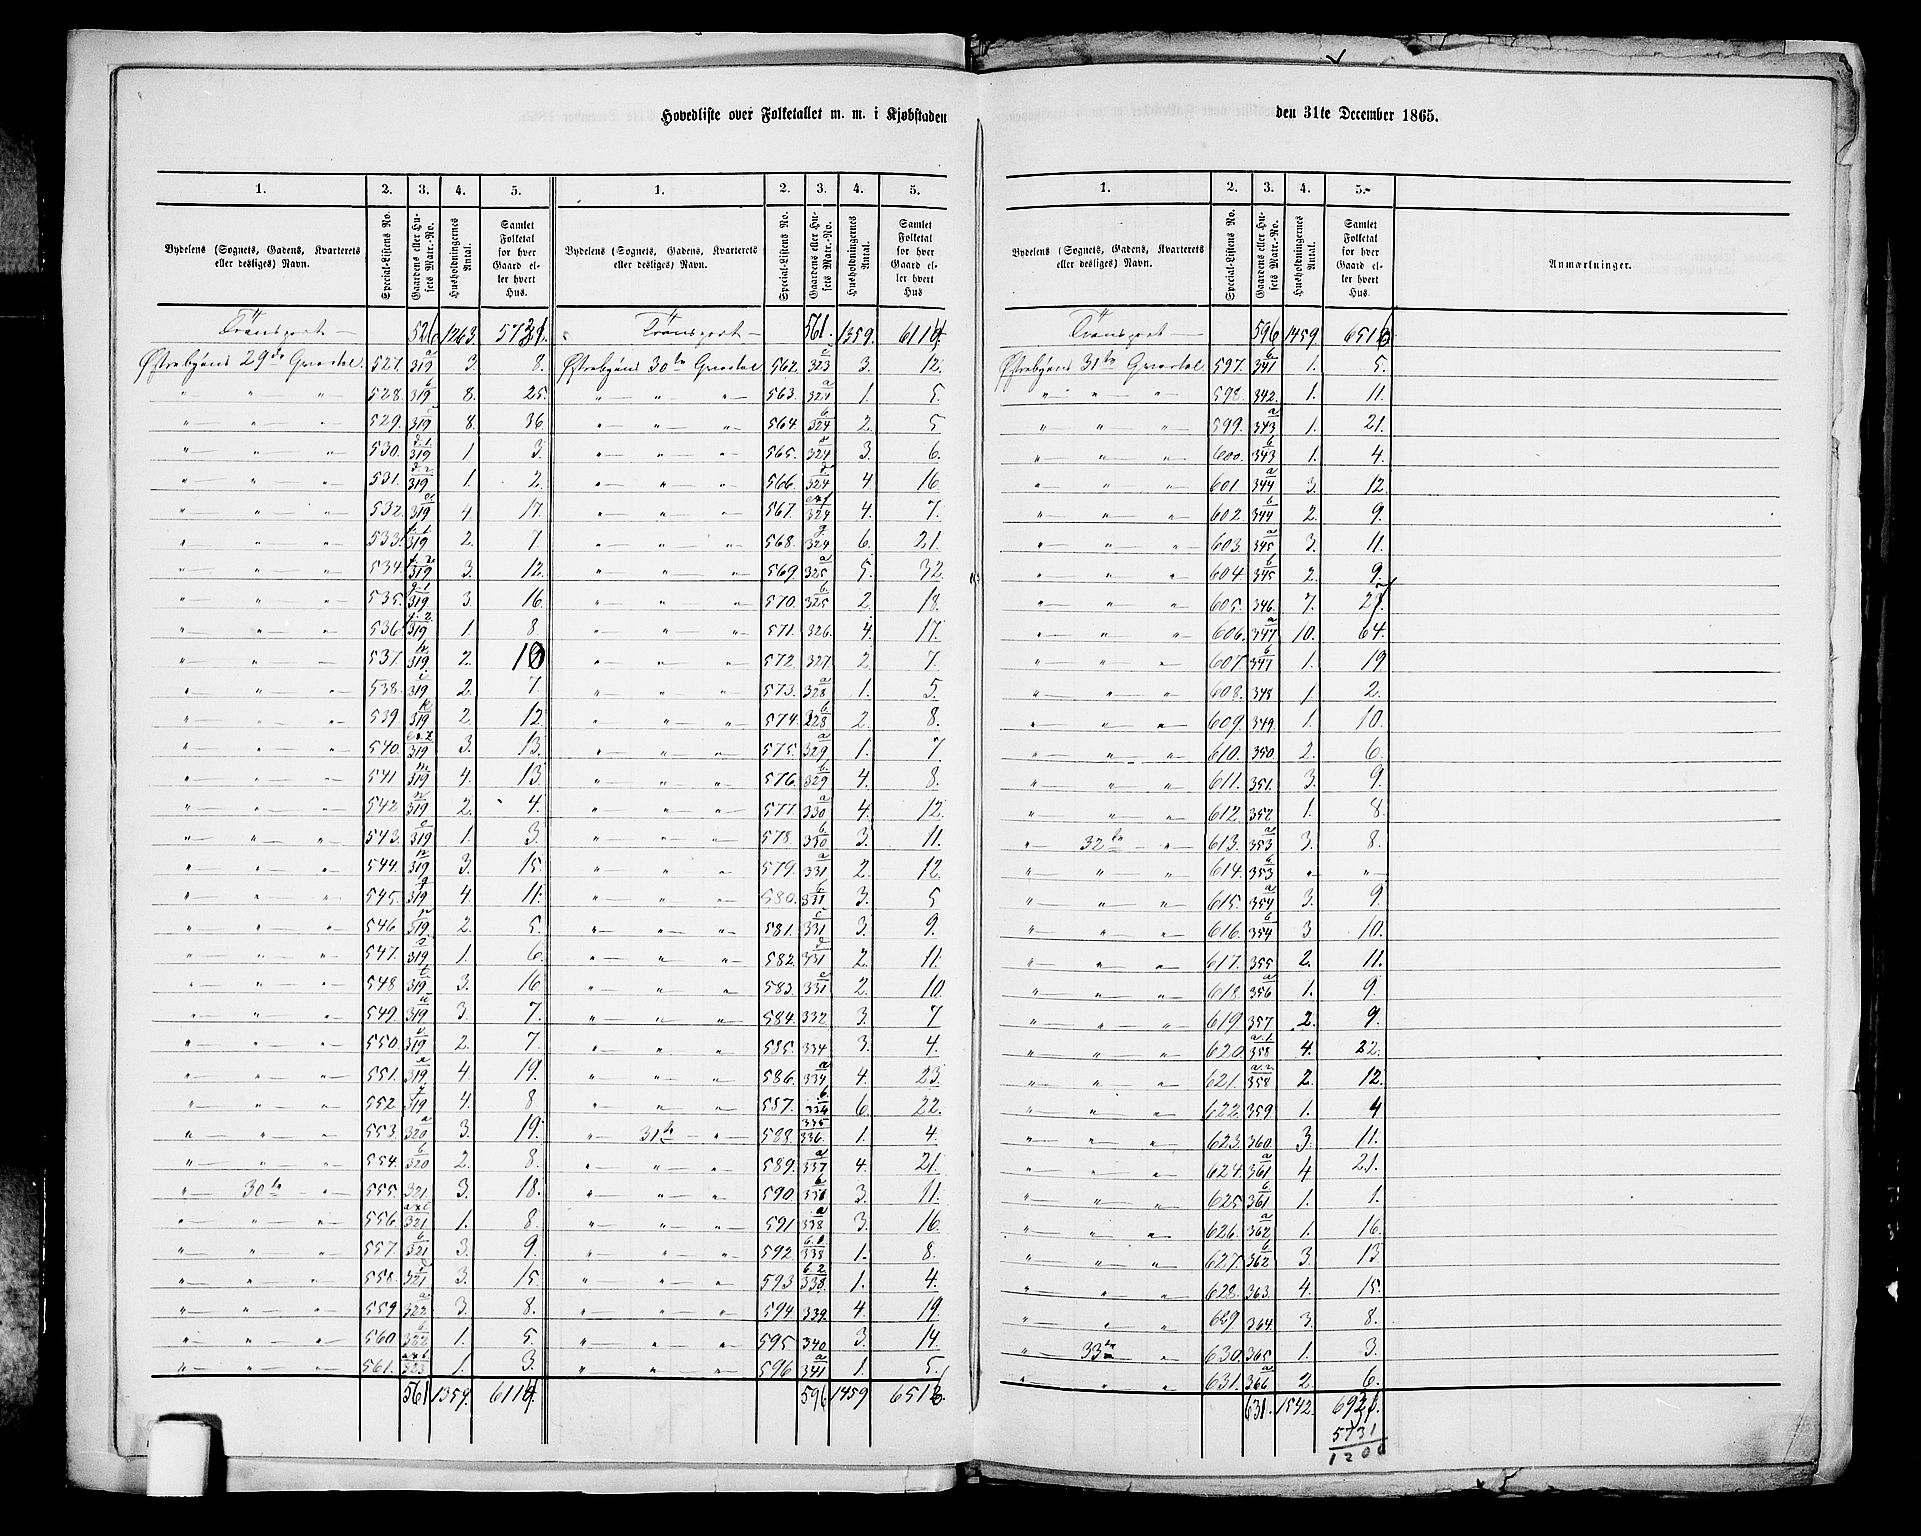 Hovedliste over Folketallet m. m. i Kjøbstaden den 31te December 1865.
1. 2. 3. 4. 5. 1. 2. 3. 4. 5.
Bydelens (Sognets, Gadens, Kvarterets eller desliges) Navn. Special-Listens No. Gaardens eller Husets Matr.-No. Husholdningernes Antal. Samlet Folketal for hver Gaard eller hvert Hus.
Bydelens (Sognets, Gadens, Kvarterets eller desliges) Navn. Special-Listens No. Gaardens eller Husets Matr.-No. Husholdningernes Antal. Samlet Folketal for hver Gaard eller hvert Hus
Transport 526 1263. Transport 561. 1359.
Østrebyens 29de Qvartal. 527. a/319 3. 8. Østrebyens 30te Qvartal 562. c/323 3. 12.
" " " 528. b/319 8. 25. " " " 563. a/324 1. 5.
" " " 529. c/319 8. 36 " " " 564. b/324 2. 5
" " " 530. d.1/319 1 3. " " " 565. 324 3. 6.
" " " 531. d.2/319 1. 2. " " " 566. 324 4 16
" " " 532. 319 4 17. " " " 567. 324 4. 7.
" " " 533. f.1/319 2. 7 " " " 568. g/324 6. 21.
" " " 534. f.2/319 3. 12. " " " 569. a/325 5. 32.
" " " 535. g.1/319 3. 16. " " " 570. b/325 2. 18.
" " " 536. g.2/319 1. 8. " " " 571. 326. 4. 17.
" " " 537 h/319 2. " " " 572. 327. 2 7.
" " " 538. i/319 2. 7. " " " 573. a/328 1. 5.
" " " 539 k/319 2. 12. " " " 574. b/328 2. 8.
" " " 540. 319 3. 13. " " " 575. a/329 1. 7
" " " 541 m/319 4. 13. " " " 576. b/329 4. 8.
" " " 542. n/319 2. 4. " " " 577. a/330 4. 12.
" " " 543. 319 1. 3. " " " 578. b/330 3. 11.
" " " 544. 319 3. 15. " " " 579. a/331 2. 12.
" " " 545. q/319 4. 11. " " " 580. b/331 3. 5
" " " 546 319. 2. 5. " " " 581. c/331 3. 9.
" " " 547. 319 1. 6. " " " 582. d/331 2. 11.
" " " 548 t/319 3. 16 " " " 583. e/331 2. 10.
" " " 549. u/319 3. 7. " " " 584. 332. 3. 7
" " " 550. v/319 2. 7. " " " 585. 334. 3. 4.
" " " 551. x/319 4 19. " " " 586. a/334 4. 23.
" " " 552. y/319 4. 8 " " " 587. b/334 6. 22.
" " " 553. a/320 3. 19. " 31te " 588. 335/336. 1. 4.
" " " 554. b/320 2. 8. " " " 589. a/337 4. 21.
" 30te " 555. 321. 3. 18. " " " 590. b 3. 11.
" " " 556. 321 1. 8. " " " 591 a/338 3. 16.
" " " 557. b/321 3. 9. " " " 592 338 1. 8.
" " " 558. 321 3. 15. " " " 593 b.2/338. 1. 4.
" " " 559 a/322 3. 8. " " " 594 339. 4. 19.
" " " 560 b/322 1. 5. " " " 595. 340 3. 14.
" " " 561. 323 1. 3. " " " 596 a/341 1. 5.
561 1359. 596 1459
1. 2. 3. 4. 5.
Bydelens (Sognets, Gadens, Kvarterets eller desliges) Navn. Special-Listens No. Gaardens eller Husets Matr.-No. Husholdningernes Antal. Samlet Folketal for hver Gaard eller hvert Hus. Anmærkninger.
Transport 596 1459.
Østrebyens 31te Qvartal. 597. b/341 1. 5.
" " " 598. 342. 1. 11.
" " " 599. a/343 1. 21.
" " " 600. b/343 1. 4.
" " " 601. a/344 3. 12.
" " " 602. b/344 2. 9.
" " " 603. a/345 3. 11.
" " " 604 b/345 2. 9.
" " " 605. 346. 7.
" " " 606. a/347 10. 64.
" " " 607. b/347 1. 19
" " " 608. 348 1 2.
" " " 609. 349. 1. 10.
" " " 610. 350. 2. 6.
" " " 611. 351. 3. 9.
" " " 612. 352 1. 8.
" 32te " 613. a/353 3. 8.
" " " 614. b/353 " "
" " " 615. a/354 3. 9.
" " " 616. b/354 3 10.
" " " 617. 355 2. 11.
" " " 618. a/356 1. 9.
" " " 619 357 2. 9.
" " " 620. a.1/358 4. 22.
" " " 621. a.2/358 2. 12.
" " " 622. 359 1. 4
" " " 623. 360. 3. 11.
" " " 624. a/361 4 21.
" " " 625. b/361 1. 1.
" " " 626. a/362 1. 16.
" " " 627. b/362 3. 13.
" " " 628. 363. 4. 15.
" " " 629 364. 3. 8.
" 33te " 630. 365 1. 3.
" " " 631. a/366 2. 6.
631. 1542.
5731